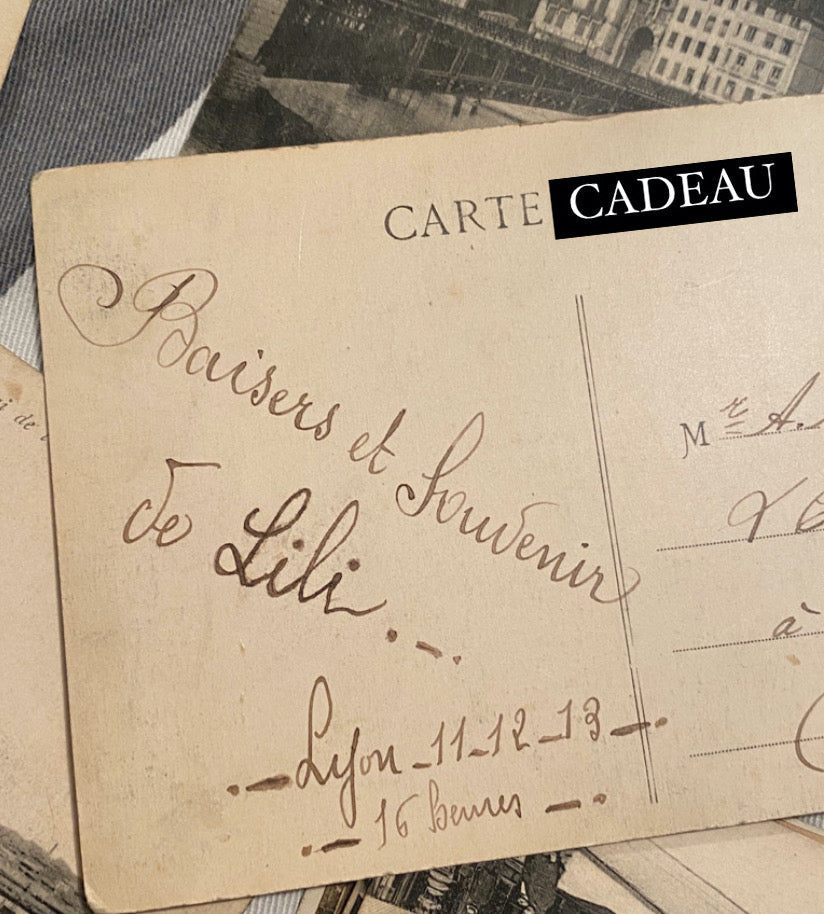 CARTE CADEAU
Baisers et Souvenir
de Lili.
Lyon_11_12_13
16 heures
M r A.
à